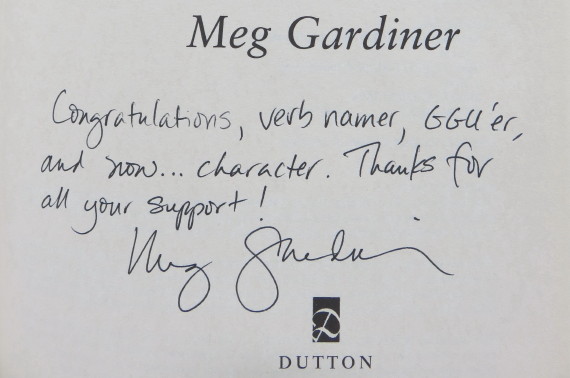 Meg Gardiner
Congratulations, verb namer, GGU'er,
and now... character. Thanks for
all your support!
Meg Gardiner
DUTTON